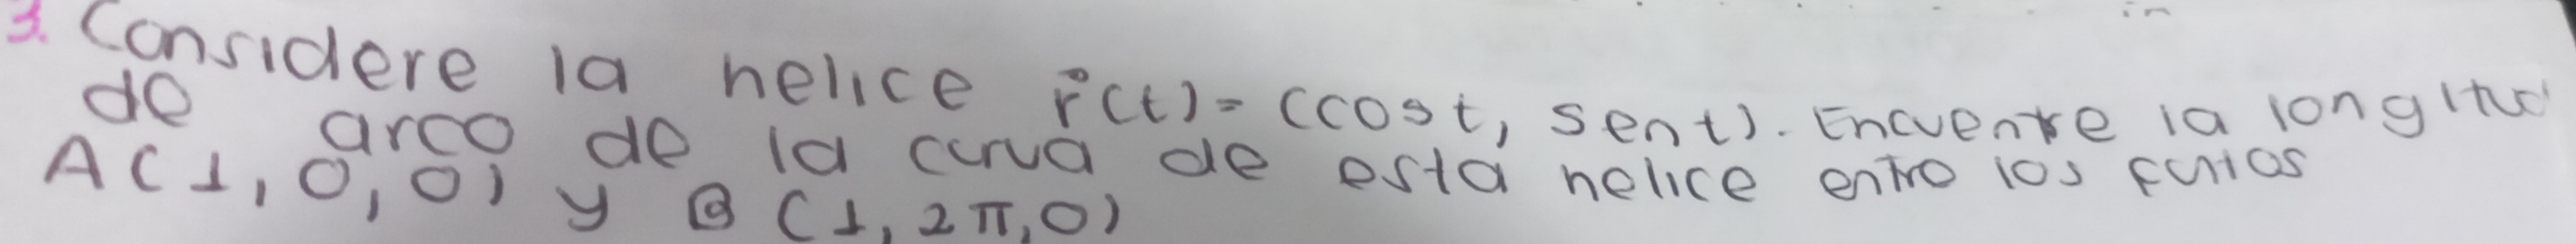 3. Considere la helice r(t) = (cost, sent). Encuentre la longitud
de arco de la curva de esta helice entre los puntos
A(1,0,0) y B(1,2π,0)